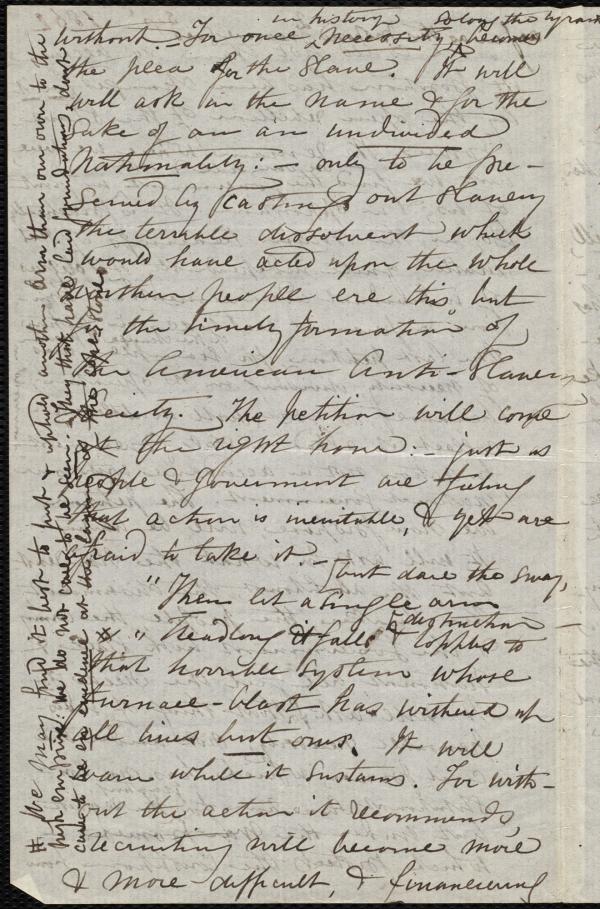 in history so long the tyrant's
without. – For once, necessity becomes
the plea for the Slave. It will
will ask in the name & for the
sake of an an undivided
Nationality: – only to be pre-
served by casting out slavery
the terrible dissolvent which
would have acted upon the whole
Northern people ere this, but
for the timely formation of
the American Anti-Slavery
Society. The petition will come
at the right hour: – just as
people & government are feeling
that action is inevitable, & yet are
afraid to take it. –
but dare the sway,
"Then let a single arm
" headlong it falls & destruction –
topples to
that horrible system whose
furnace-blast has withered up
all lives but ours. It will
warn while it sustains. For with-
out the action it recommends,
recruiting will become more
& more difficult, & financiering
# We may find it best to put & uphold another arm than our own to the
high emprise: we do not care to be seen. They that have laid foundations, dont
care to be in evidence at the laying of the cope-stone.